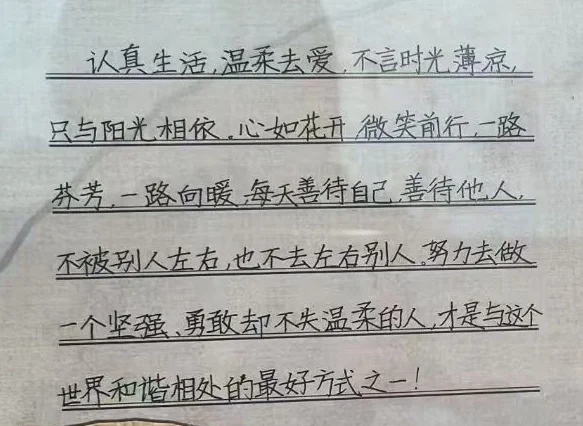 认真生活,温柔去爱,不言时光薄凉,
只与阳光相依。心如花开,微笑前行,一路
芬芳,一路向暖,每天善待自己,善待他人,
不被别人左右,也不去左右别人。努力去做
一个坚强、勇敢却不失温柔的人,才是与这个
世界和谐相处的最好方式之一!